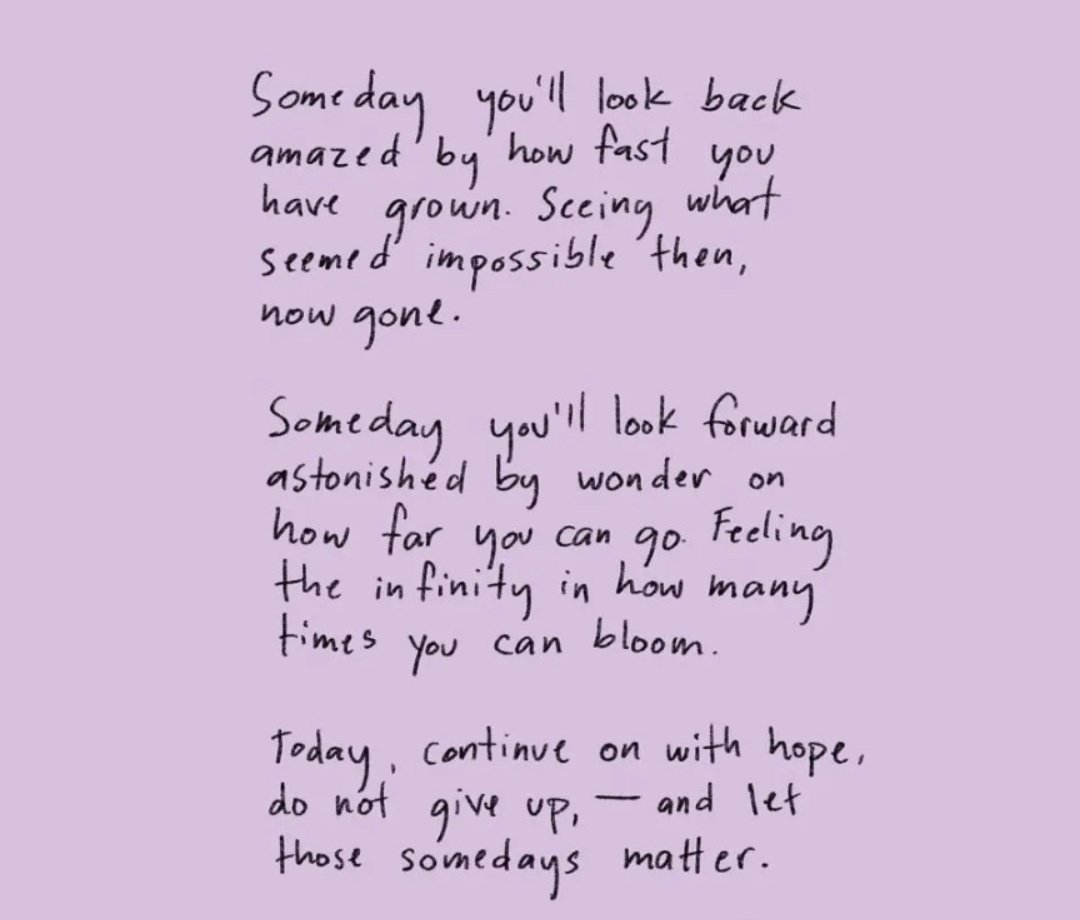 Someday you'll look back
amazed by how fast you
have grown. Seeing what
seemed impossible then,
now gone.
Someday you'll look forward
astonished by wonder on
how far you can go. Feeling
the infinity in how many
times you can bloom.
Today, continue on with hope,
do not give up, — and let
those somedays matter.